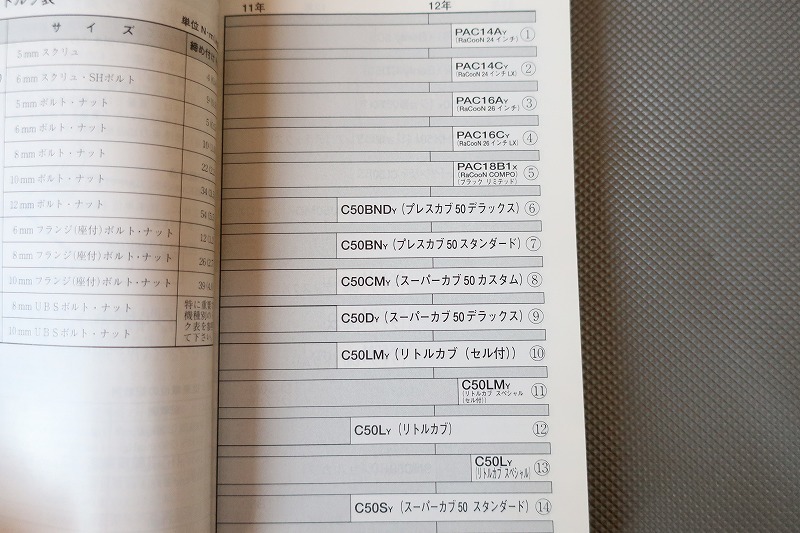 トルク表
単位 N·m
サイズ
締め付け
5mm スクリュ
6mm スクリュ・SHボルト
5mm ボルト・ナット
6mm ボルト・ナット
8mm ボルト・ナット
10mm ボルト・ナット
12mm ボルト・ナット
6mm フランジ(座付)ボルト・ナット
8mm フランジ(座付)ボルト・ナット
10mm フランジ(座付)ボルト・ナット
8mm UBSボルト・ナット
10mm UBSボルト・ナット
10
22
34
54
12
26
39
特に重要
機種別の
ク表を
て下さい
11年
12年
PAC14AY ①
(RaCooN 24インチ)
PAC14CY ②
(RaCooN 24インチ LX)
PAC16AY ③
(RaCooN 26インチ)
PAC16CY ④
(RaCooN 26インチ LX)
PAC18B1X ⑤
(RaCooN COMPO)
(ブラック リミテッド)
C50BNDY (プレスカブ50 デラックス) ⑥
C50BNY (プレスカブ50 スタンダード) ⑦
C50CMY (スーパーカブ50 カスタム) ⑧
C50DY (スーパーカブ50 デラックス) ⑨
C50LMY (リトルカブ (セル付)) ⑩
C50LMY ⑪
(リトルカブ スペシャル
(セル付))
C50LY (リトルカブ) ⑫
C50LY ⑬
(リトルカブ スペシャル)
C50SY (スーパーカブ50 スタンダード) ⑭